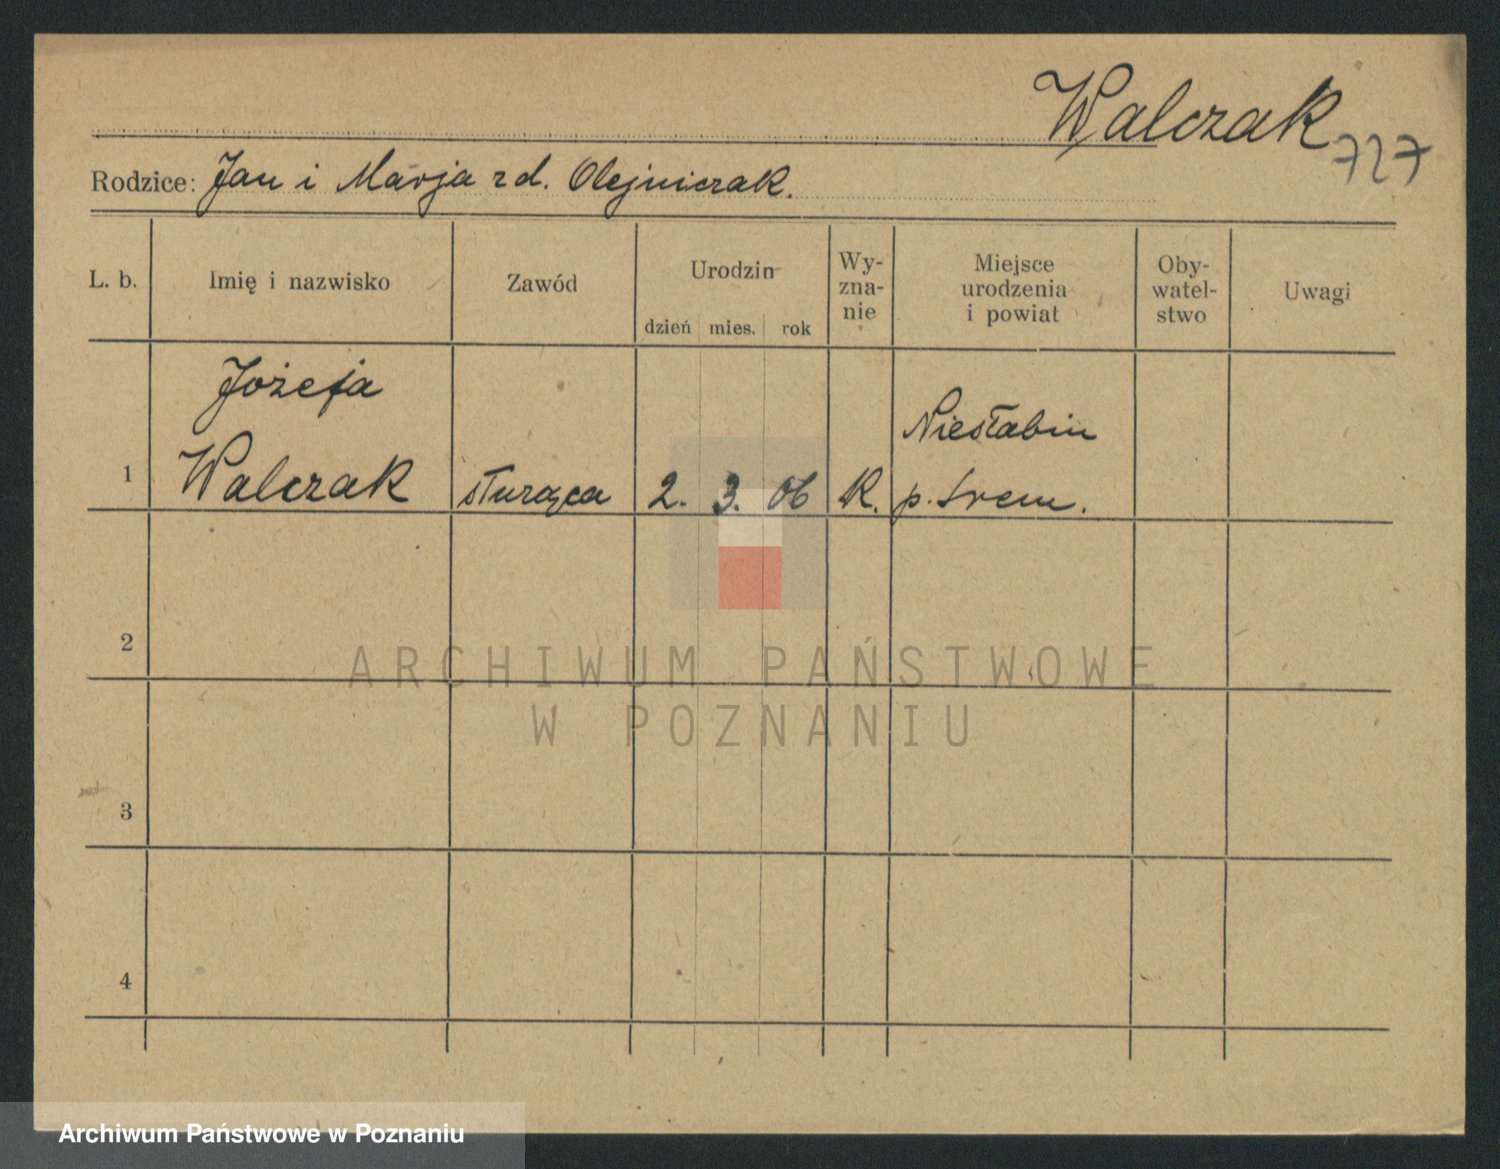 Walczak
727
Rodzice: Jan i Marja zd. Olejniczak.
L. b. Imię i nazwisko Zawód Urodzin dzień mies. rok Wy-
zna-
nie Miejsce
urodzenia
i powiat Oby-
watel-
stwo Uwagi
Józefa
Walczak
1 służąca 2. 3. 06 K. Niesłabin
p. Śrem.
2
3
4
ARCHIWUM PAŃSTWOWE
W POZNANIU
Archiwum Państwowe w Poznaniu